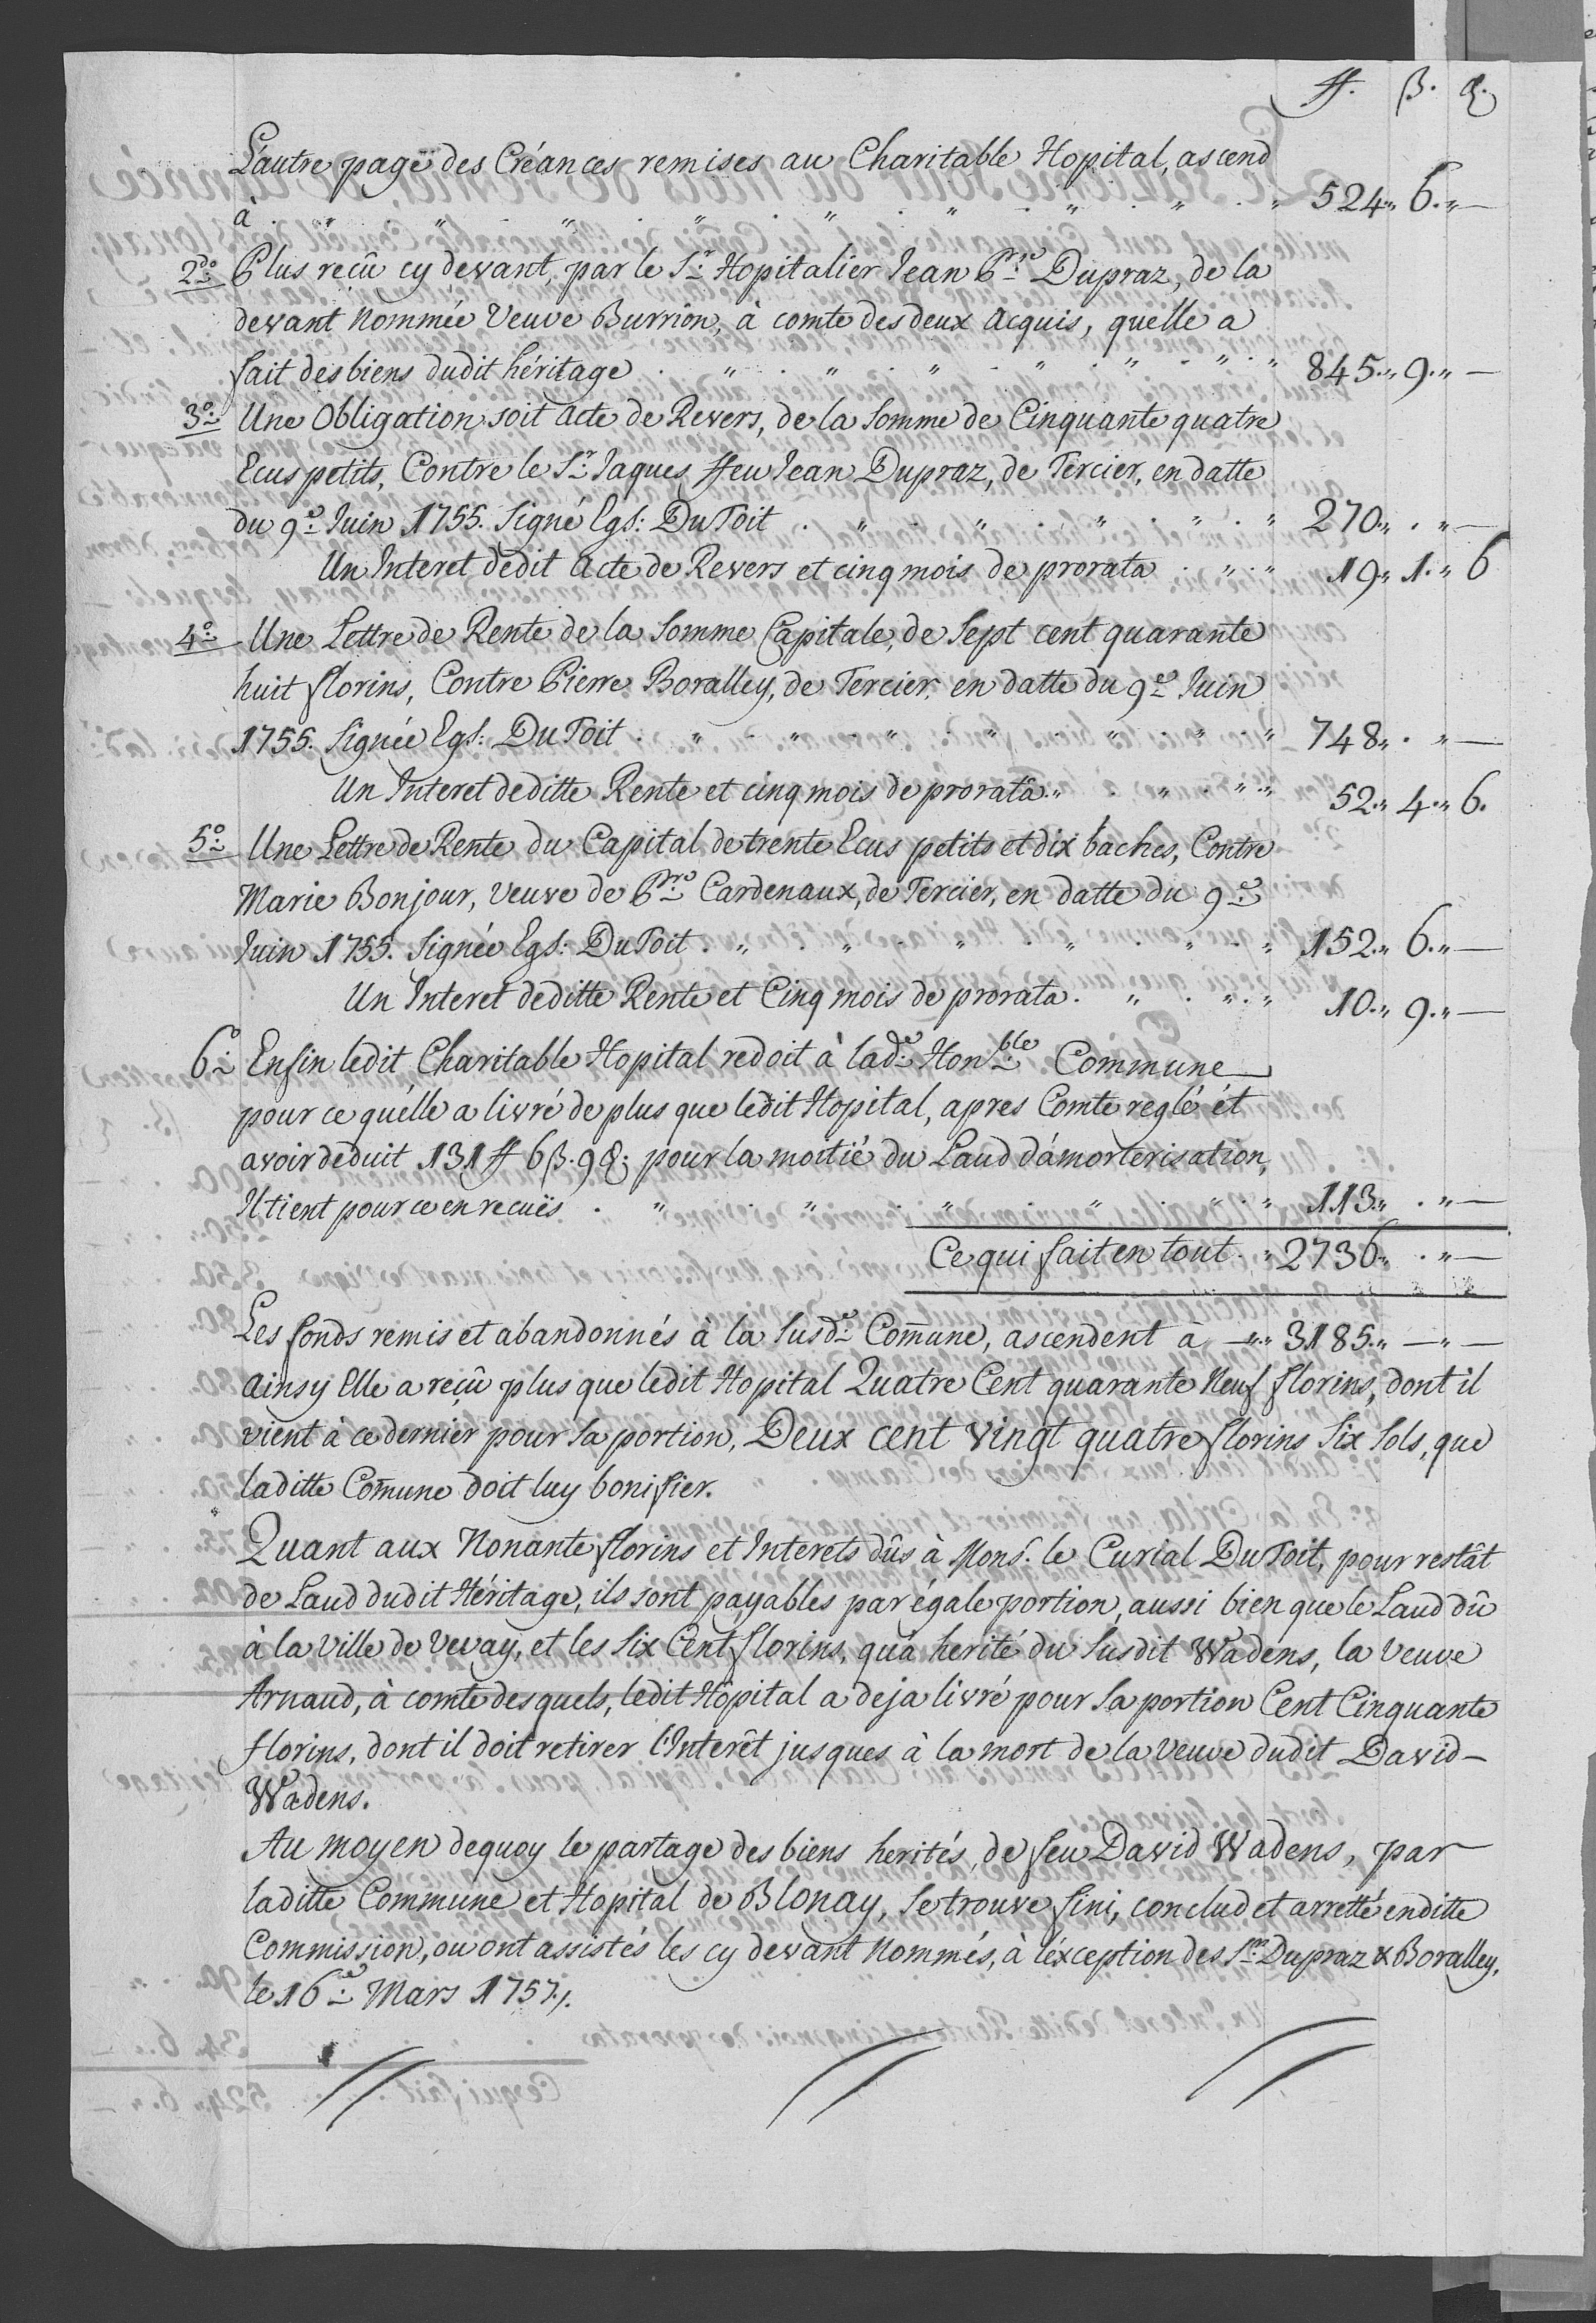 ff. β. ₰.
L'autre page des Créances remises au Charitable Hopital, ascend
à . " . " . " . " . " . " . " . " 524" 6." —
2do Plus reçû cy devant, par le Sr. Hopitalier Jean Prre Dupraz, de la
devant Nommée Veuve Burrion, à comte des deux Acquis, quelle a
fait des biens dudit héritage . " . " . " . " . " . " 845." 9." —
3o. Une Obligation soit Acte de Revers, de la Somme de Cinquante quatre
Ecus petits, Contre le Sr. Jaques ffeu Jean Dupraz, de Tercier, en datte
du 9e. Juin 1755. Signé Egs: DuToit . " . " . " . " . " 270" . " —
Un Interet dedit Acte de Revers et cinq mois de prorata . " . " 19" 1." 6
4o. Une Lettre de Rente de la Somme Capitale, de Sept cent quarante
huit florins, Contre Pierre Boralley, de Tercier, en datte du 9e. Juin
1755. Signée Egs: DuToit . " . " . " . " . " . " 748" . " —
Un Interet deditte Rente et cinq mois de prorata." . " . " 52." 4." 6.
5o. Une Lettre de Rente du Capital de trente Ecus petits et dix baches, Contre
Marie Bonjour, Veuve de Prre Cardenaux, de Tercier, en datte du 9e.
Juin 1755. Signée Egs: DuToit . " . " . " . " . " . " 152." 6." —
Un Interet deditte Rente et Cinq mois de prorata . " . " . " 10." 9." —
6o. Enfin ledit Charitable Hopital redoit à lade. Honble. Commune
pour ce qu'elle a livré de plus que ledit Hopital, apres Comte reglé et
avoir deduit 131 ff 6 β. 9 ₰; pour la moitié du Laud d'amorterisation,
Il tient pour ce en recuës . " . " . " . " . " . " 113." . " —
Ce qui fait en tout . " 2736" . " —
Les fonds remis et abandonnés à la Susde. Com̄une, ascendent à —"." 3185." —" —
Ainsy Elle a reçû plus que ledit Hopital Quatre Cent quarante Neuf florins, dont il
vient à ce dernier pour Sa portion, Deux cent vingt quatre florins Six Sols, que
laditte Com̄une doit luy bonifier.
Quant aux Nonante florins et Interets dûs à Monsr. le Curial DuToit, pour restât
de Laud dudit Héritage, ils sont payables par égale portion, aussi bien que le Laud dû
à la Ville de Vevay, et les Six Cent florins, qu'a herité du Susdit Wadens, la Veuve
Arnaud, à comte desquels, ledit Hôpital a deja livré pour Sa portion Cent Cinquante
florins, dont il doit retirer l'Interêt jusques à la mort de la Veuve dudit David-
Wadens.
Au moyen dequoy le partage des biens herités, de feu David Wadens, par
laditte Commune et Hopital de Blonay, Se trouve fini, conclud et arretté en ditte
Commission, ou ont assistés les cy devant Nommés, à l'éxception des Srs. Dupraz & Boralley,
le 16e. Mars 1757./.